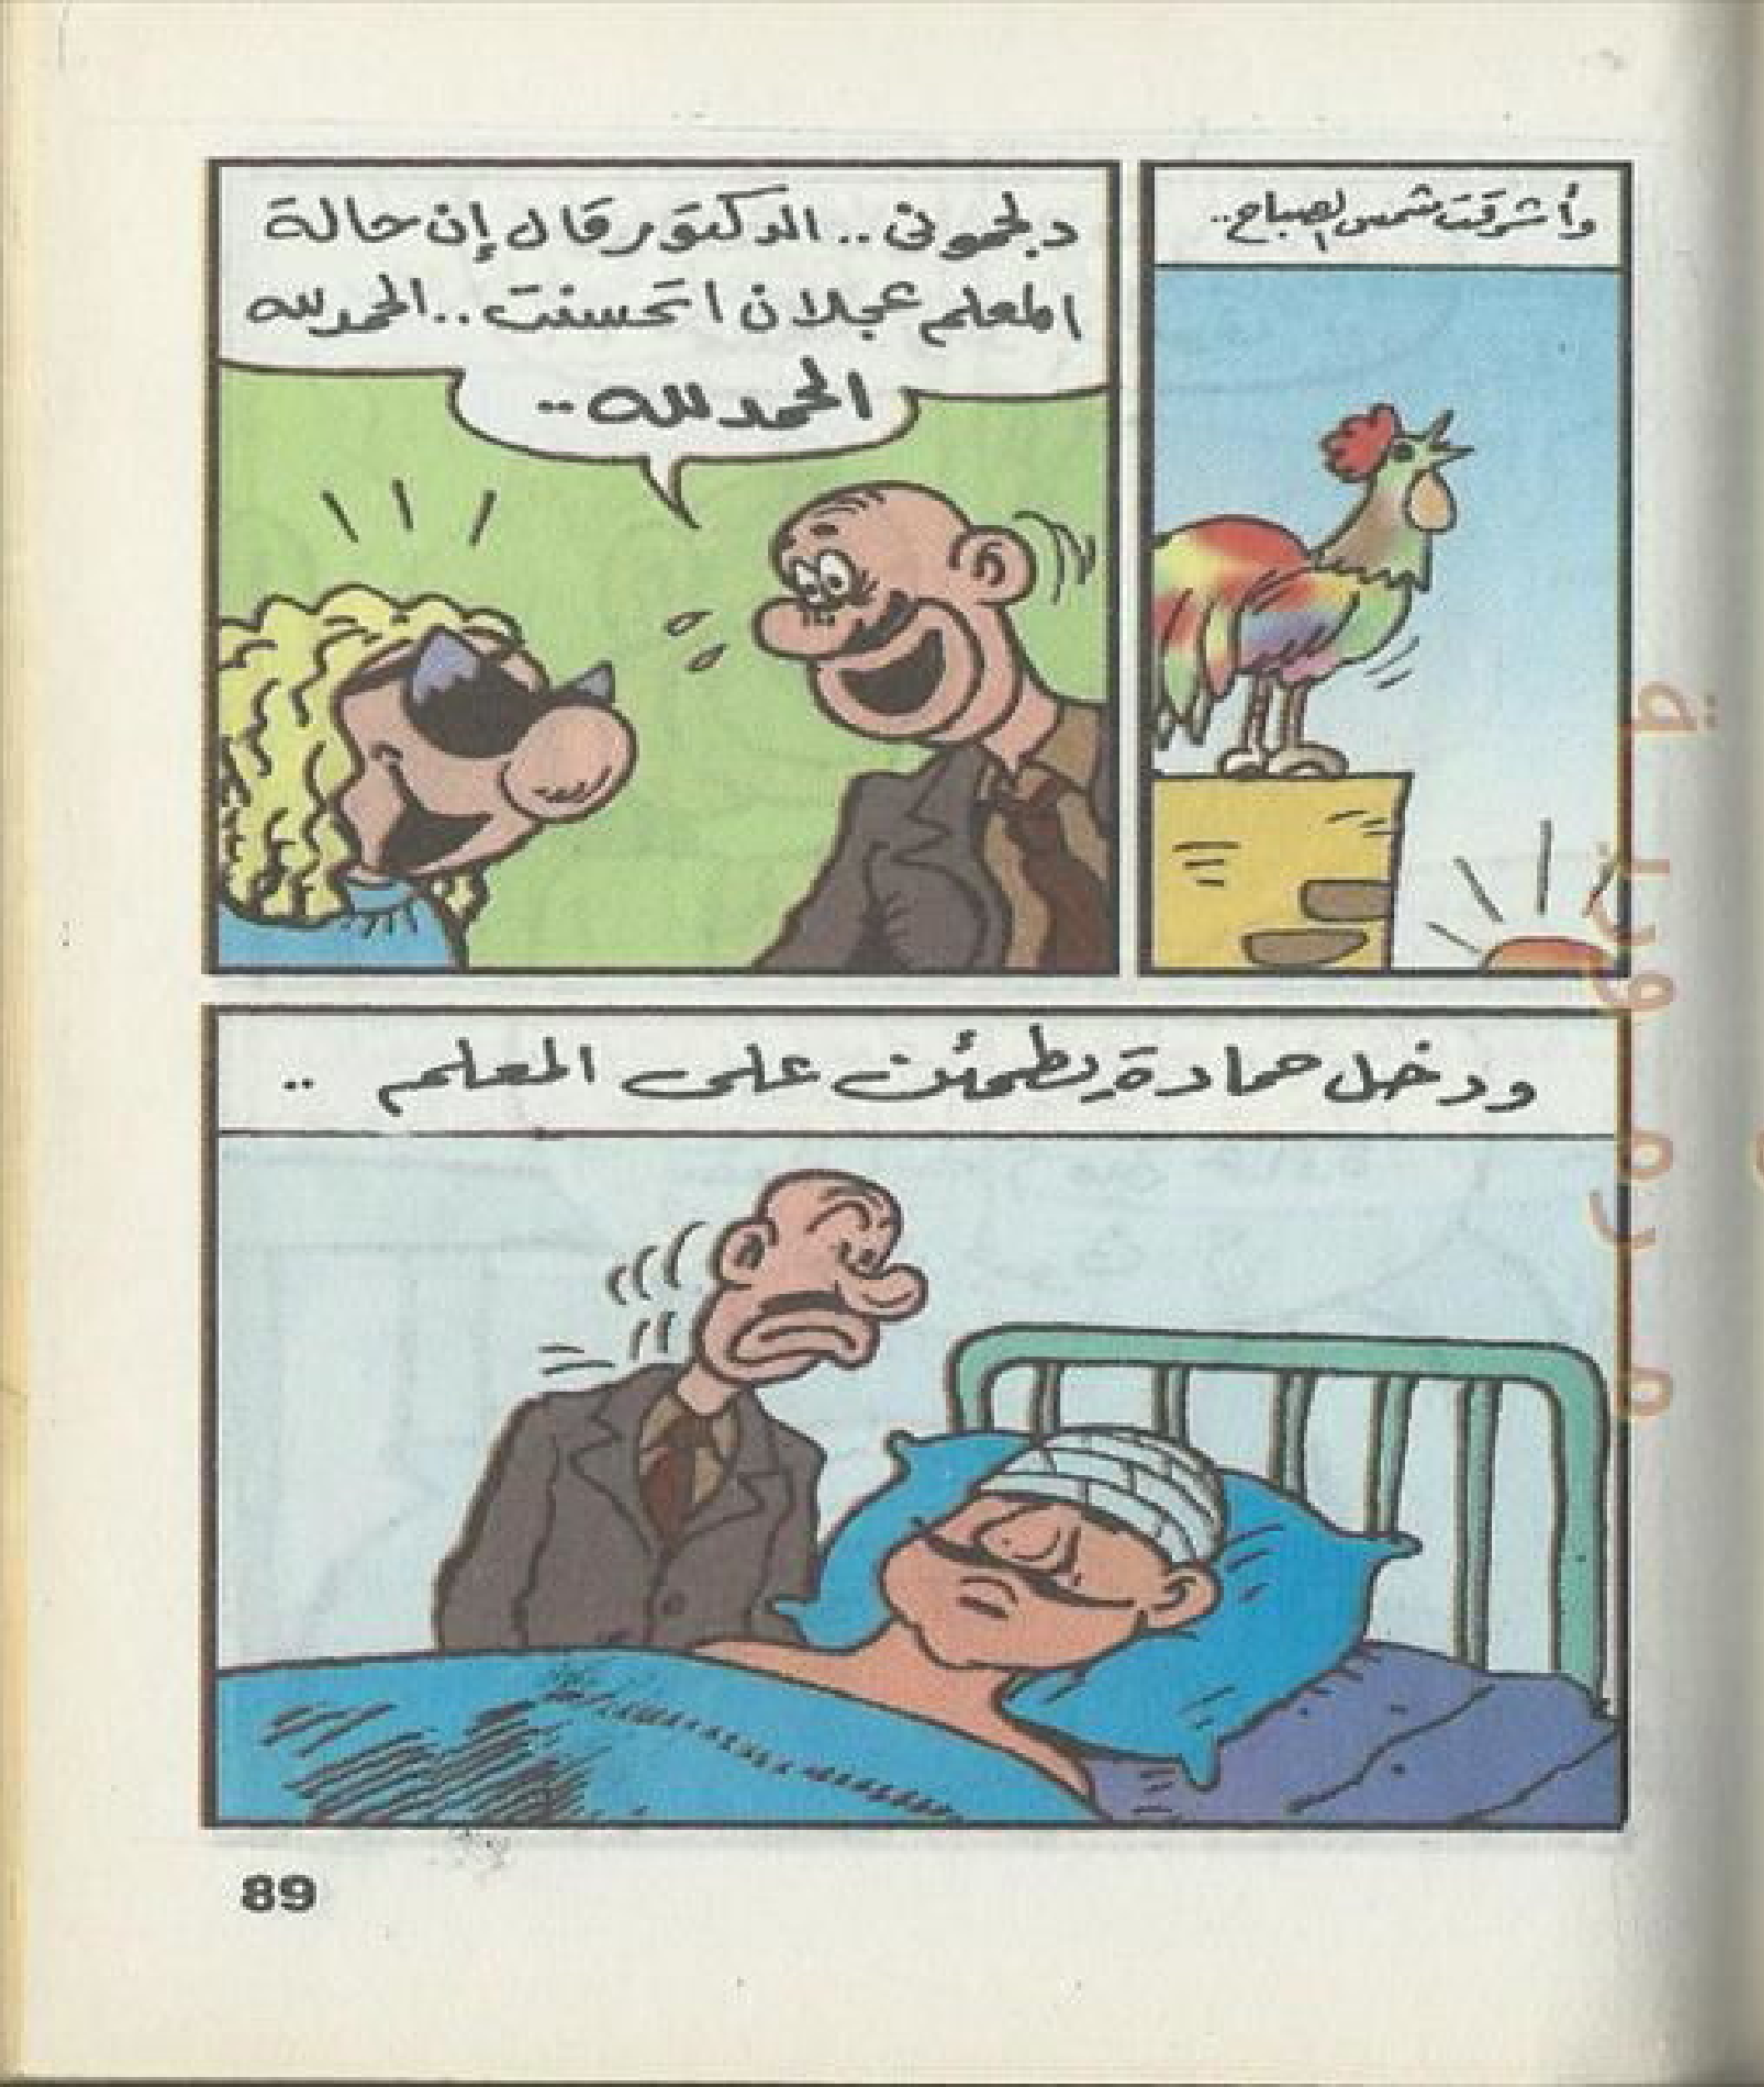 وأشرقت شمس الصباح..
دبلحمونى.. الدكتور قال إن حالة
المعلم عجلان اتحسنت.. الحمد لله
الحمد لله..
ودخل حمادة يطمئن على المعلم ..
89